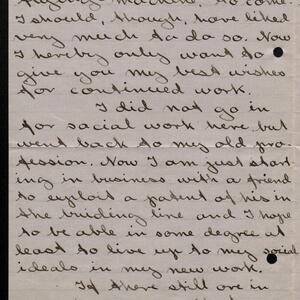 machine, to come.
I should, though, have liked
very much to do so. Now
I hereby only want to
give you my best wishes
for continued work.
I did not go in
for social work here, but
went back to my old pro
fession. Now I am just start
ing in business with a friend
to exploit a patent of his in
the building line and I hope
to be able in some degree at
least to live up to my social
ideals in my new work.
If there still are in